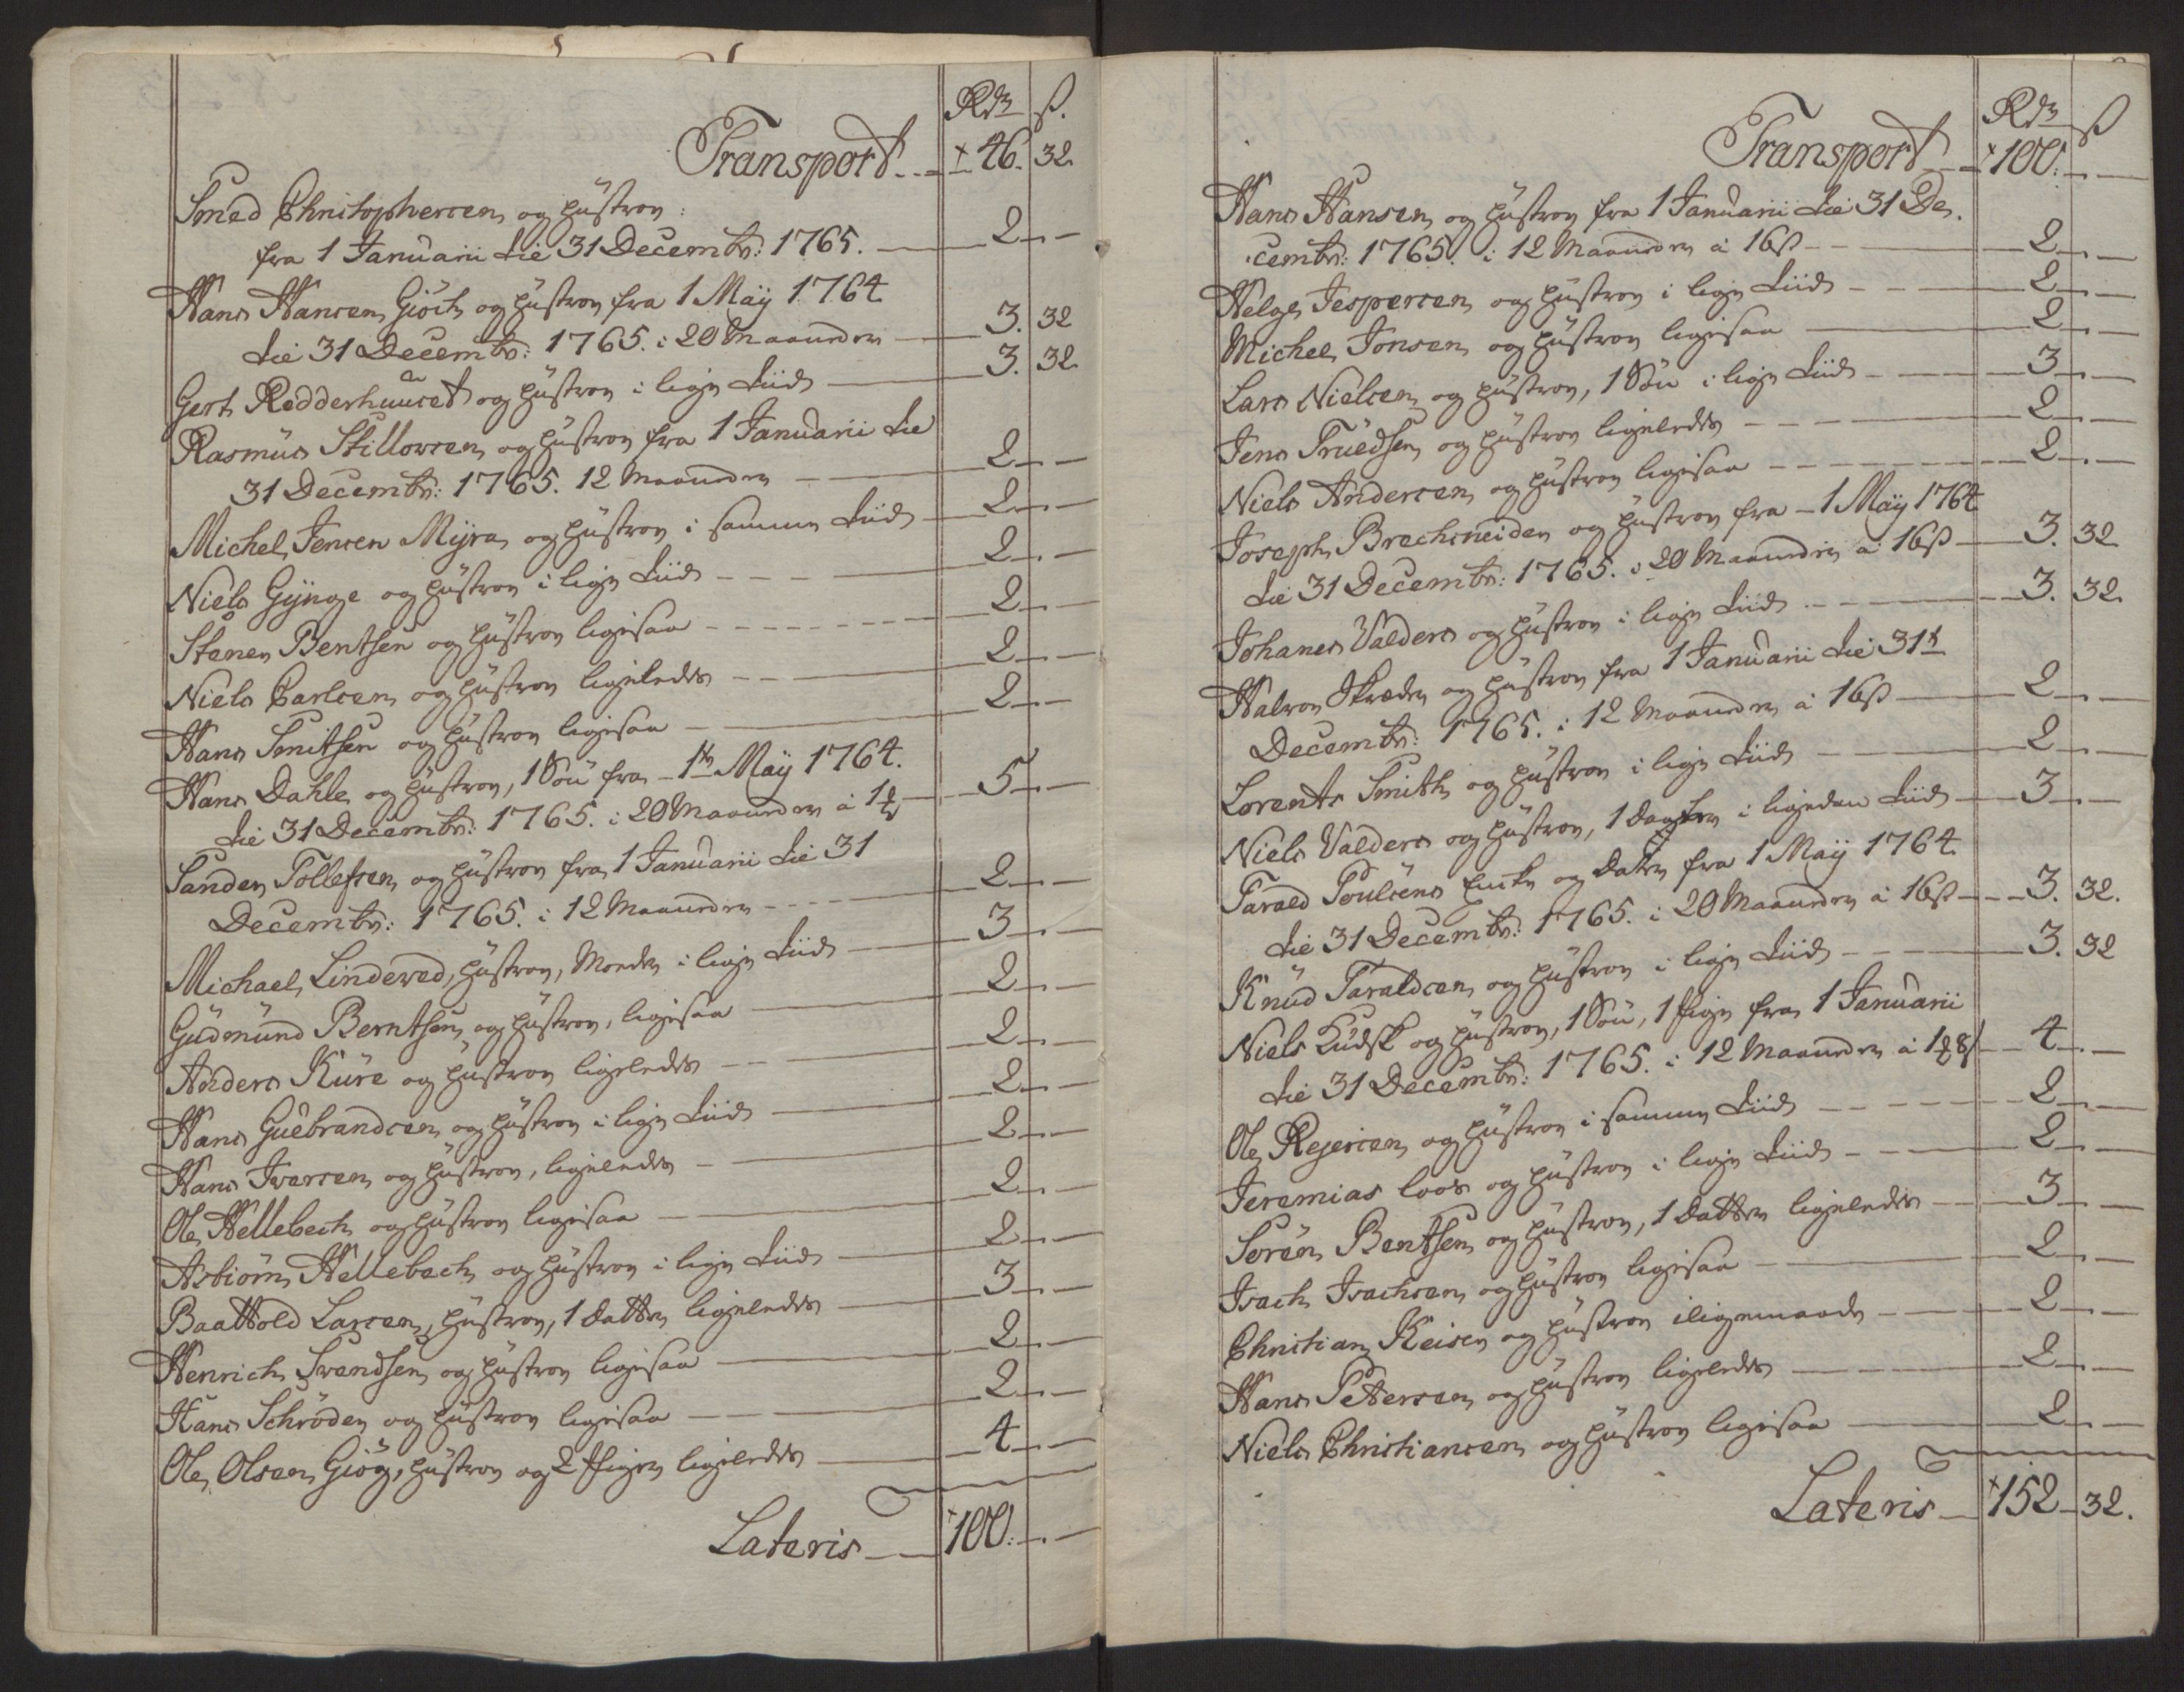 Rdr ß.
Transport.. 46. 32.
Smed Christophersen og Hüstrov:
fra 1 Januarii til 31 Decembr: 1765. — 2 —
Hans Hansen Giöch og Hüstrov fra 1 Maÿ 1764
til 31 Decembr: 1765. i 20 Maaneder — 3. 32
Gert Redderhuuset og Hüstrov i lige Tiid — 3. 32
Rasmus Stillovsen og Hüstrov fra 1 Januarii til
31 Decembr: 1765. 12 Maaneder — 2 —
Michel Jensen Mÿra og Hüstrov i samme Tiid — 2 —
Niels Gÿnge og Hüstrov i lige Tiid — 2 —
Stänen Bentsen og Hüstrov ligesaa — 2 —
Niels Carlsen og Hüstrov ligeledes — 2 —
Hans Smitsen og Hüstrov ligesaa — 2 —
Hans Dahle og Hüstrov, 1 Sön fra 1te Maÿ 1764.
til 31 Decembr: 1765. i 20 Maaneder à 1 — 5 —
Sanden Tollefsen og Hüstrov fra 1 Januarii til 31
Decembr: 1765. i 12 Maaneder — 2 —
Michael Lindeved, Hüstrov, Moder i lige Tiid — 3 —
Gudmund Berntsen og Hüstrov, ligesaa — 2 —
Anders Küre og Hüstrov ligeledes — 2 —
Hans Guëbrandsen og Hüstrov i lige Tiid — 2 —
Hans Iversen og Hüstrov, ligeledes — 2 —
Ole Hellebech og Hüstrov ligesaa — 2 —
Asbiörn Hellebech og Hüstrov i lige Tiid — 2 —
Baattold Larsen, Hüstrov, 1 datter ligeledes — 3 —
Henrich Svendsen og Hüstrov ligesaa — 2 —
Hans Schröder og Hüstrov ligesaa — 2 —
Ole Olsen Giög, Hüstrov og 2 Piger ligeledes — 4 —
Lateris — 100. —
Rdr ß
Transport — 100. —
Hans Hansen og Hüstrov fra 1 Januarii til 31 De-
cembr: 1765. i 12 Maaneder à 16 ß — 2 —
Helge Jespersen og Hüstrov i lige Tiid — 2 —
Michel Jonsen og Hüstrov ligesaa — 2 —
Lars Nielsen og Hüstrov, 1 Sön i lige Tiid — 3 —
Jens Truedsen og Hüstrov ligeledes — 2 —
Niels Andersen og Hüstrov ligesaa — 2 —
Joseph Brechsneider og Hüstrov fra 1 Maÿ 1764
til 31 Decembr: 1765. i 20 Maaneder à 16 ß — 3. 32
Johanes Valders og Hüstrov i lige Tiid — 3. 32.
Halvor Skræder og Hüstrov fra 1 Januarii til 31te
Decembr: 1765. i 12 Maaneder à 16 ß — 2 —
Lorents Smith og Hüstrov i lige Tiid — 2 —
Niels Valders og Hüstrov, 1 Dagter i ligedan Tiid — 3 —
Tarald Poulsens Encke og Dater fra 1 Maÿ 1764.
til 31 Decembr: 1765. i 20 Maaneder à 16 ß — 3. 32.
Knud Taraldsen og Hüstrov i lige Tiid — 3. 32
Niels Kudsk og Hüstrov, 1 Sön, 1 Pige fra 1 Januarii
til 31 Decembr: 1765. i 12 Maaneder à — 4 —
Ole Rejersen og Hüstrov i samme Tiid — 2 —
Jeremias loos og Hüstrov i lige Tiid — 2 —
Sören Bentsen og Hüstrov, 1 datter ligeledes — 3 —
Isach Isachsen og Hüstrov ligesaa — 2 —
Christian Keisen og Hüstrov i ligemaade — 2 —
Hans Pettersen og Hüstrov ligeledes — 2 —
Niels Christiansen og Hüstrov ligesaa — 2 —
Lateris — 152 — 32.